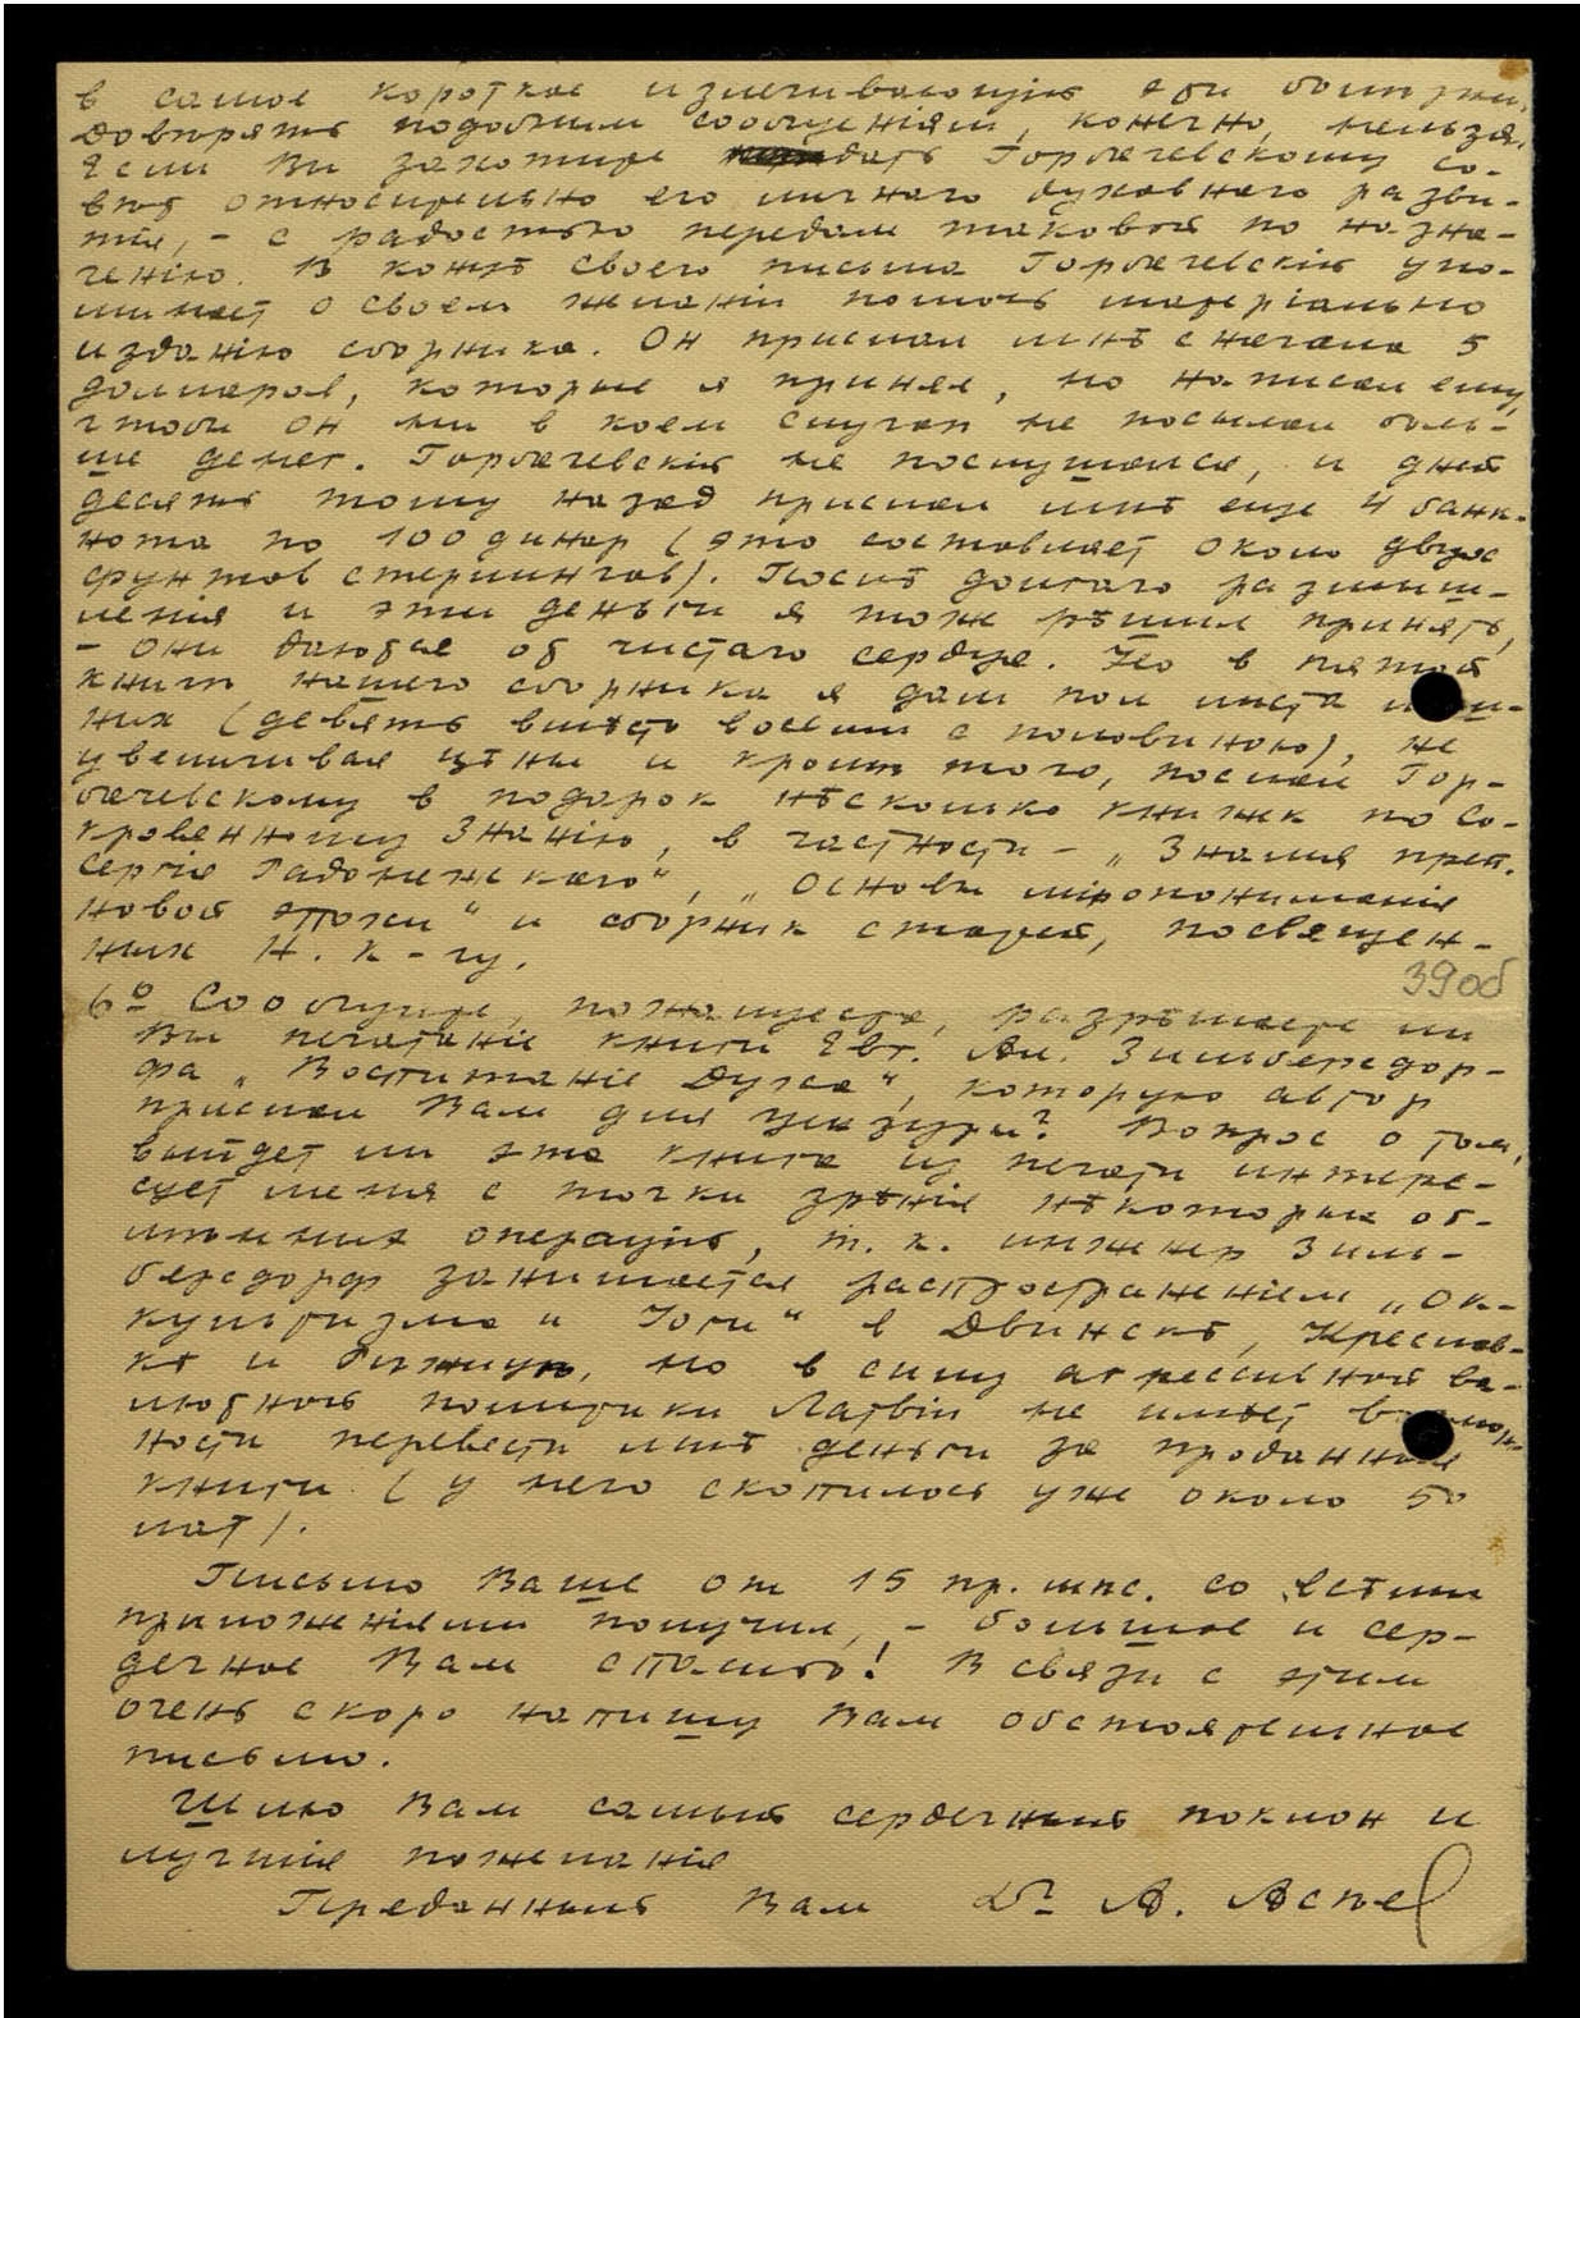 в самое короткое излечивающую эти болезни.
Доверять подобным сообщеніям, конечно, нельзя.
Если Вы захотите дать Горбачевскому со-
вѣт относительно его личнаго духовнаго разви-
тія, – с радостью передам таковой по назна-
ченію. В концѣ своего письма Горбачевскій упо-
минает о своем желаніи помочь матеріально
изданію сборника. Он прислал мнѣ сначала 5
долларов, которые я принял, но написал ему,
чтобы он ни в коем случаѣ не посылал боль-
ше денег. Горбачевскій не послушался, и дней
десять тому назад прислал мнѣ еще 4 банк-
нота по 100 динар (это составляет около двух
фунтов стерлингов). Послѣ долгаго размыш-
ленія и эти деньги я тоже рѣшил принять,
– они даются от чистаго сердца. Но в пятой
книгѣ нашего сборника я дам пол листа
них (девять вмѣсто восьми с половиною), не
увеличивая цѣны и кромѣ того, послал Гор-
бачевскому в подарок нѣсколько книжек по Со-
кровенному Знанію, в частности – „Знамя преп.
Сергія Радонежскаго“, „Основы міропониманія
Новой Эпохи“ и сборник статей, посвящен-
ных Н. К-чу.
39об
6º Сообщите, пожалуйста, разрѣшаете ли
Вы печатаніе книги Евг. Ал. Зильберсдор-
фа „Воспитаніе Духа“, которую автор
прислал Вам для цензуры? Вопрос о том,
выйдет ли эта книга из печати интере-
сует меня с точки зрѣнія нѣкоторых об-
мѣнных операцій, т. к. инженер Зиль-
берсдорф занимается распространеніем „Ок-
культизма и Іоги“ в Двинскѣ, Креслав-
кѣ и но в силу агрессивной ва-
лютной политики Латвіи не имѣет возмож-
ности перевести мнѣ деньги за проданныя
книги (у него скопилось уже около 50
лат).
Письмо Ваше от 15 пр. мѣс. со всѣми
приложеніями получил, – большое и сер-
дечное Вам спасибо! В связи с этим
очень скоро напишу Вам обстоятельное
письмо.
Шлю Вам самый сердечный поклон и
лучшія пожеланія
Преданный Вам Dr А. Асѣев